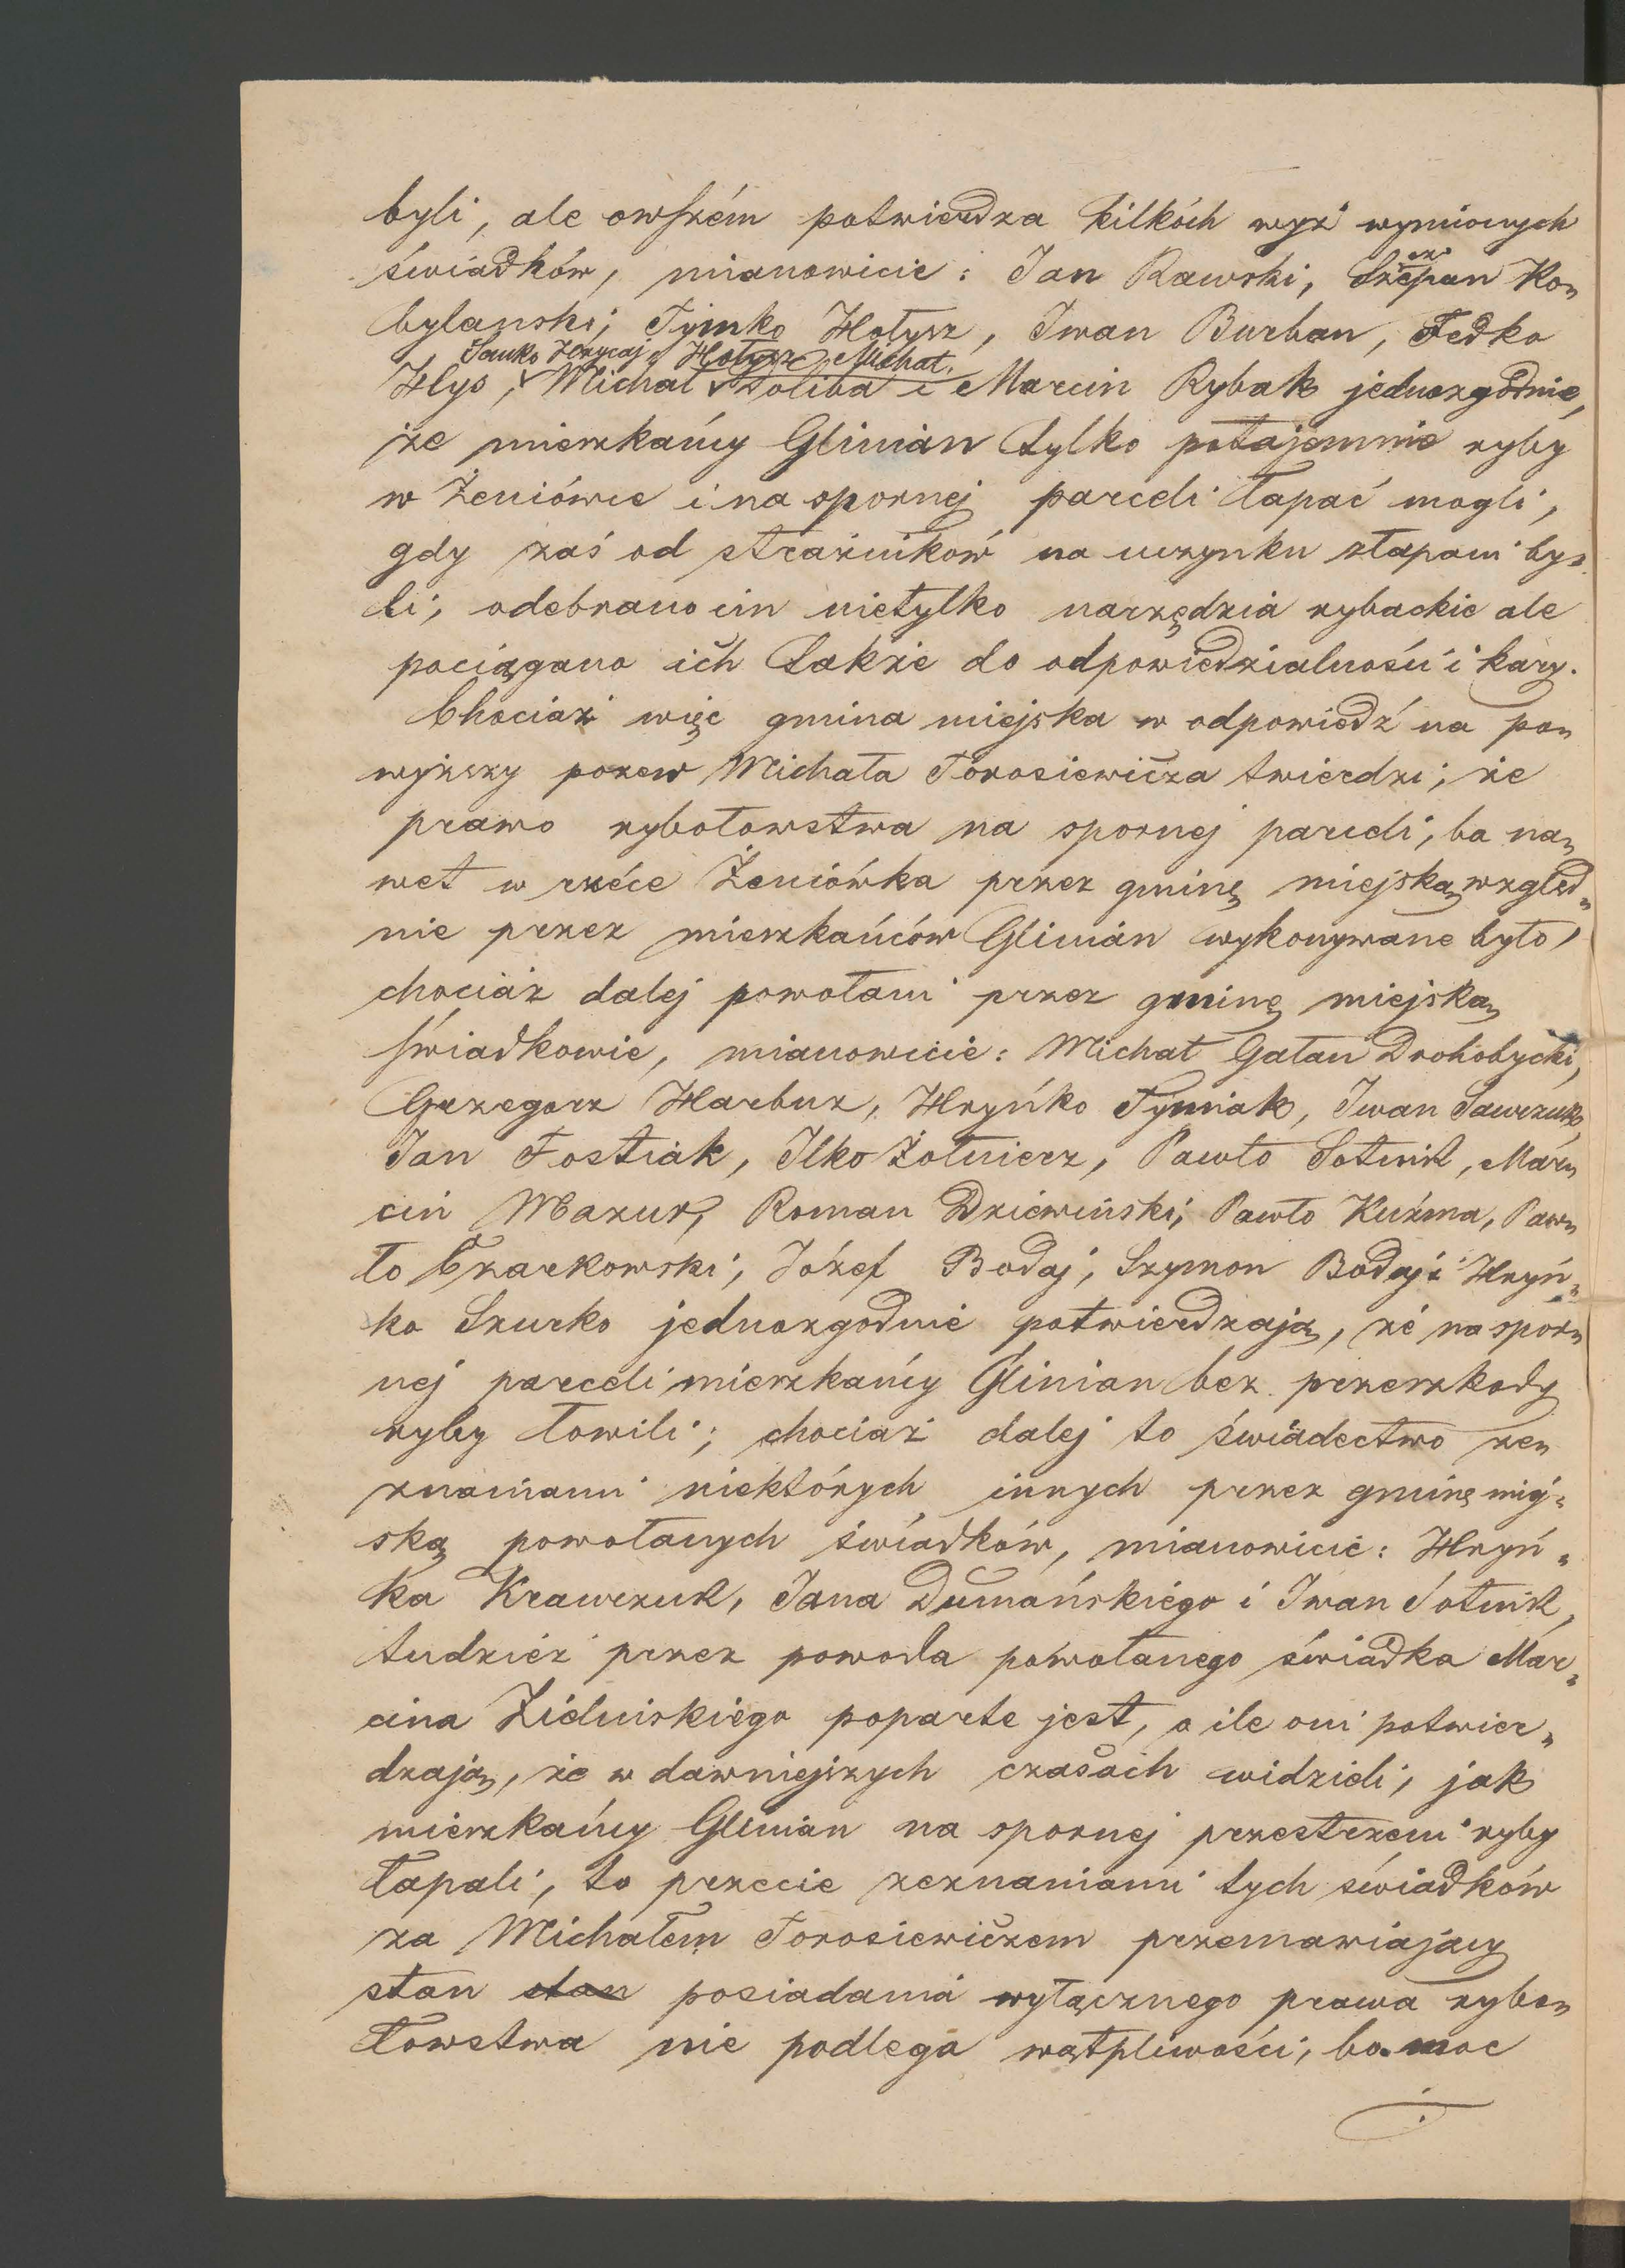 byli, ale owszém potwierdza kilkóch wyż wymionych
świadków, mianowicie: Jan Rawski, Szczepan Ko„
bylanski; Tymko Hołysz, Iwan Burban, Fedko
Sanko Hrycaj, Hołysz Michał,
Hlys, Michał Woliba i Marcin Rybak jednozgodnie,
że mieszkańcy Glinian tylko potajemnie ryby
w Żeniówce i na spornej parceli łapać mogli,
gdy zaś od strażników na uczynku złapani by„
li, odebrano im nietylko narzędzia rybackie ale
pociągano ich także do odpowiedzialności i kary.
Chociaż więc gmina miejska w odpowiedź na po„
wyższy pozew Michała Torosiewicza twierdzi; że
prawo rybołowstwa na spornej parceli, ba na„
wet w rzéce Żeniówka przez gminę miejską względ„
nie przez mieszkańców Glinian wykonywane było,
chociaż dalej powołani przez gminę miejską
świadkowie, mianowicie: Michał Gałan Drohobycki,
Grzegorz Harbuz, Hryńko Tymiak, Iwan Sawczuk,
Jan Fostiak, Ilko Żołnierz, Pawło Sotnik, Mar„
cin Mazur, Roman Dziewiński; Pawło Kuźma, Paw„
ło Czarkowski, Józef Bodaj, Szymon Bodaj i Hryń„
ko Szurko jednozgodnie potwierdzają, że na spor„
nej parceli mieszkańcy Glinian bez przeszkody
ryby łowili; chociaż dalej to świadectwo ze„
znaniami niektórych innych przez gminę miej„
ską powołanych świadków, mianowicie: Hryń„
ka Krawczuk, Jana Dumańskiégo i Iwan Sotnik,
tudzież przez powoda powołanego świadka Mar„
cina Zielinskiégo poparte jest, o ile oni potwier„
dzają, że w dawniejszych czasach widzieli, jak
mieszkańcy Glinian na spornej przestrzeni ryby
łapali, to przecie zeznaniami tych świadków
za Michałem Torosiewiczem przemawiający
stan stan posiadania wyłącznego prawa rybo„
łowstwa nie podlega wątpliwości, bo moc